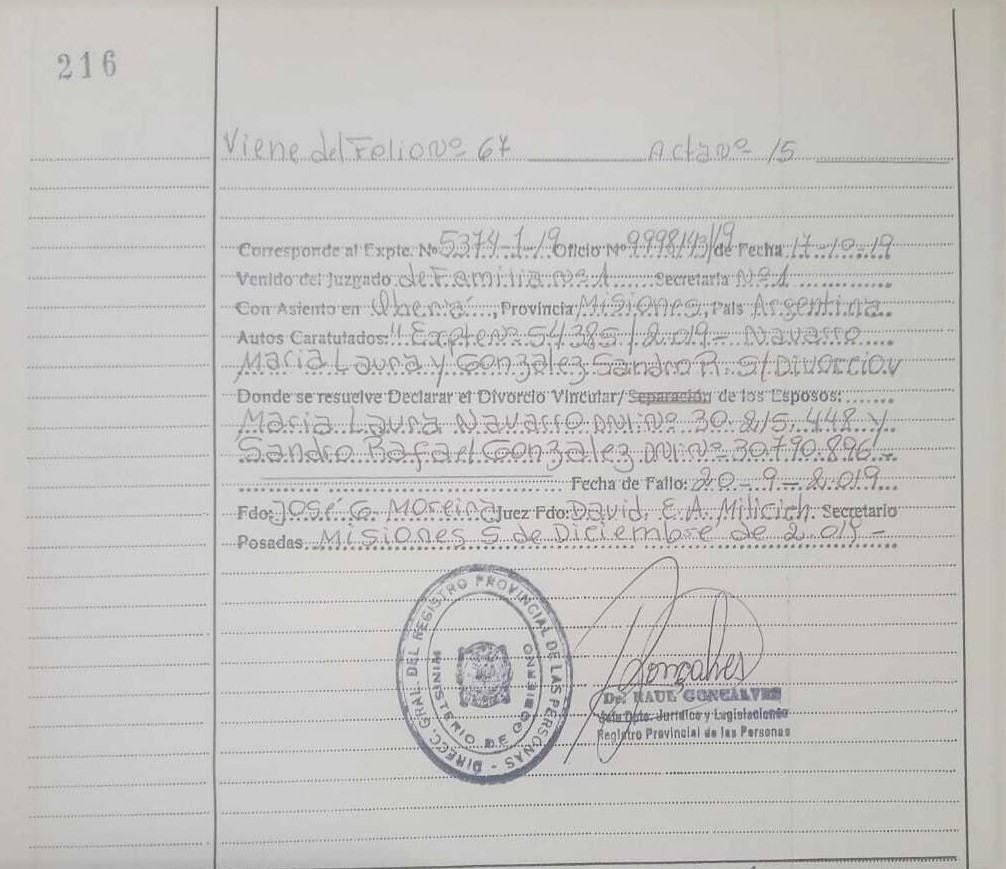 216
Viene del Folio Nº 67 Acta Nº 15
Corresponde al Expte. Nº 5374-1-19 Oficio Nº 9998/43/19 de Fecha 17-10-19
Venido del Juzgado de Familia Nº 1 Secretaria Nº 1
Con Asiento en Oberá, Provincia Misiones, País Argentina
Autos Caratulados: " Expte nº 54385/2.019 - Navarro
Maria Laura y Gonzalez Sandro R. S/ Divorcio "
Donde se resuelve Declarar el Divorcio Vincular/ Separación de los Esposos:
Maria Laura Navarro DNI Nº 30.815.448 y
Sandro Rafael Gonzalez DNI Nº 30.790.896 -
Fecha de Fallo: 20-9-2.019
Fdo: José G. Moreira Juez Fdo: David. E. A. Milicich. Secretario
Posadas Misiones 5 de Diciembre de 2.019 -
DIRECC. GRAL. DEL REGISTRO PROVINCIAL DE LAS PERSONAS -
MINISTERIO DE GOBIERNO
Gonçalves
Dr. RAUL GONCALVES
Jefe Dpto. Jurídico y Legislaciones
Registro Provincial de las Personas